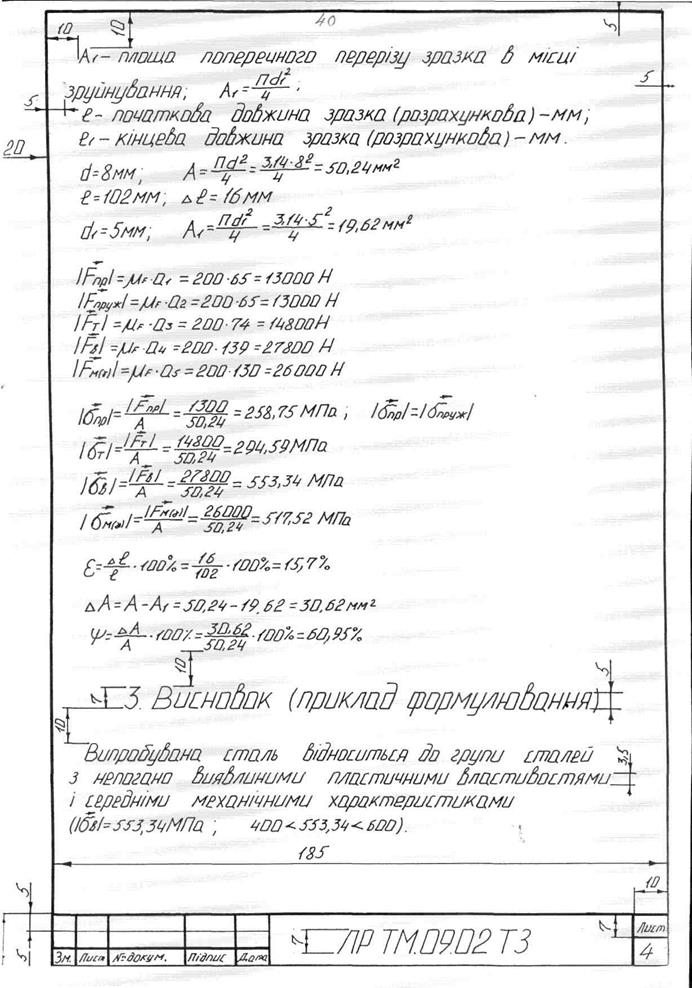 40
10
10
5
A₁ – площа поперечного перерізу зразка в місці
зруйнування; A₁=Пd₁²/4;
5
5
ℓ – початкова довжина зразка (розрахункова) – мм;
ℓ₁ – кінцева довжина зразка (розрахункова) – мм.
20
d=8мм; A=Пd²/4=3,14·8²/4=50,24мм²
ℓ=102мм; Δℓ=16мм
d₁=5мм; A₁=Пd₁²/4=3,14·5²/4=19,62мм²
|Fпр|=μF·a1=200·65=13000 Н
|Fпруж|=μF·a2=200·65=13000 Н
|Fт|=μF·a3=200·74=14800Н
|Fв|=μF·a4=200·139=27800 Н
|Fм(к)|=μF·a5=200·130=26000 Н
|σпр|=|Fпр|/A=1300/50,24=258,75 МПа; |σпр|=|σпруж|
|σт|=|Fт|/A=14800/50,24=294,59МПа
|σв|=|Fв|/A=27800/50,24=553,34 МПа
|σм(д)|=|Fм(д)|/A=26000/50,24=517,52 МПа
Ɛ=Δℓ/ℓ·100%=16/102·100%=15,7%
ΔA=A–A₁=50,24–19,62=30,62мм²
Ψ=ΔA/A·100%=30,62/50,24·100%=60,95%
10
5
7
3. Висновок (приклад формулювання)
10
Випробувана сталь відноситься до групи сталей
3,5
з непогано виявлиними пластичними властивостями
і середніми механічними характеристиками
(|σв|=553,34МПа; 400<553,34<600).
185
5
10
5
7
ЛР ТМ.09.02 ТЗ
7
Лист
4
Зм. Лист №докум. Підпис Дата